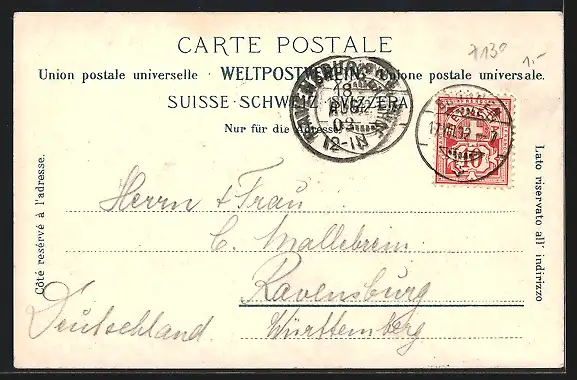 CARTE POSTALE
7130 1.-
Union postale universelle. WELTPOSTVEREIN. Unione postale universale.
SUISSE. SCHWEIZ. SVIZZERA.
Nur für die Adresse.
Côté resérvé à l'adresse.
Lato riservato all' indirizzo
18
AUG
12-1N
17.VIII.
10
Herrn & Frau
C. Mallebrein
Ravensburg
Deutschland. Württemberg